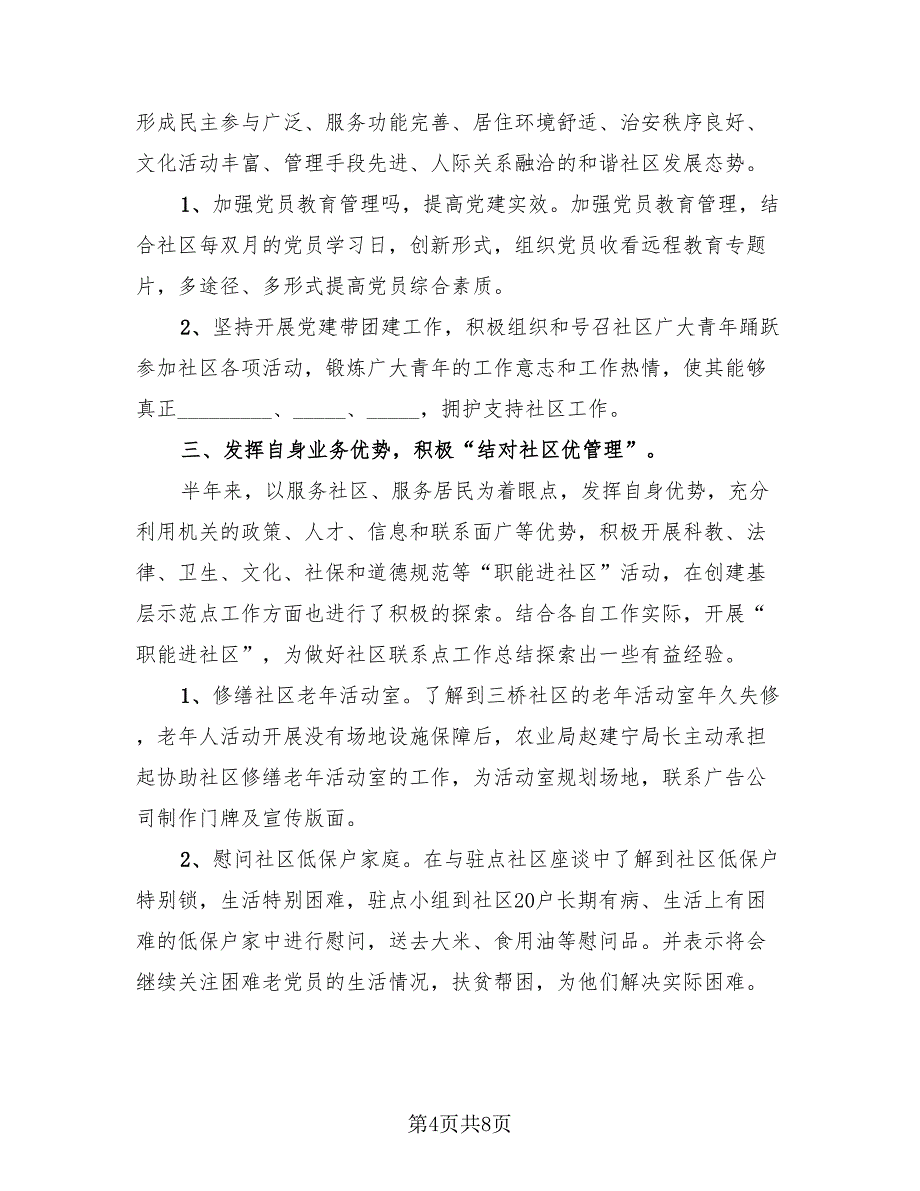 形成民主参与广泛、服务功能完善、居住环境舒适、治安秩序良好、
文化活动丰富、管理手段先进、人际关系融洽的和谐社区发展态势。
1、加强党员教育管理吗，提高党建实效。加强党员教育管理，结
合社区每双月的党员学习日，创新形式，组织党员收看远程教育专题
片，多途径、多形式提高党员综合素质。
2、坚持开展党建带团建工作，积极组织和号召社区广大青年踊跃
参加社区各项活动，锻炼广大青年的工作意志和工作热情，使其能够
真正_________、_____、_____，拥护支持社区工作。
三、发挥自身业务优势，积极“结对社区优管理”。
半年来，以服务社区、服务居民为着眼点，发挥自身优势，充分
利用机关的政策、人才、信息和联系面广等优势，积极开展科教、法
律、卫生、文化、社保和道德规范等“职能进社区”活动，在创建基
层示范点工作方面也进行了积极的探索。结合各自工作实际，开展“
职能进社区”，为做好社区联系点工作总结探索出一些有益经验。
1、修缮社区老年活动室。了解到三桥社区的老年活动室年久失修
，老年人活动开展没有场地设施保障后，农业局赵建宁局长主动承担
起协助社区修缮老年活动室的工作，为活动室规划场地，联系广告公
司制作门牌及宣传版面。
2、慰问社区低保户家庭。在与驻点社区座谈中了解到社区低保户
特别锁，生活特别困难，驻点小组到社区20户长期有病、生活上有困
难的低保户家中进行慰问，送去大米、食用油等慰问品。并表示将会
继续关注困难老党员的生活情况，扶贫帮困，为他们解决实际困难。
第4页共8页